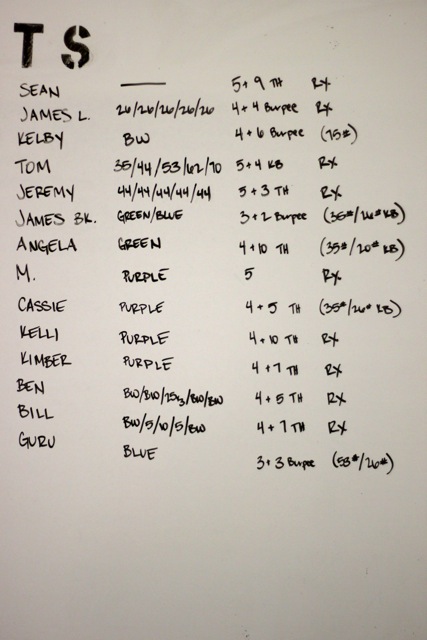 T S
SEAN — 5+9 TH RX
JAMES L. 26/26/26/26/26 4+4 Burpee RX
KELBY BW 4+6 Burpee (75#)
TOM 35/44/53/62/70 5+4 KB RX
JEREMY 44/44/44/44/44 5+3 TH RX
JAMES BK. GREEN/BLUE 3+2 Burpee (35#/26# KB)
ANGELA GREEN 4+10 TH (35#/20# KB)
M. PURPLE 5 RX
CASSIE PURPLE 4+5 TH (35#/26# KB)
KELLI PURPLE 4+10 TH RX
KIMBER PURPLE 4+7 TH RX
BEN BW/BW/25x3/BW/BW 4+5 TH RX
BILL BW/5/10/5/BW 4+7 TH RX
GURU BLUE 3+3 Burpee (53#/26#)